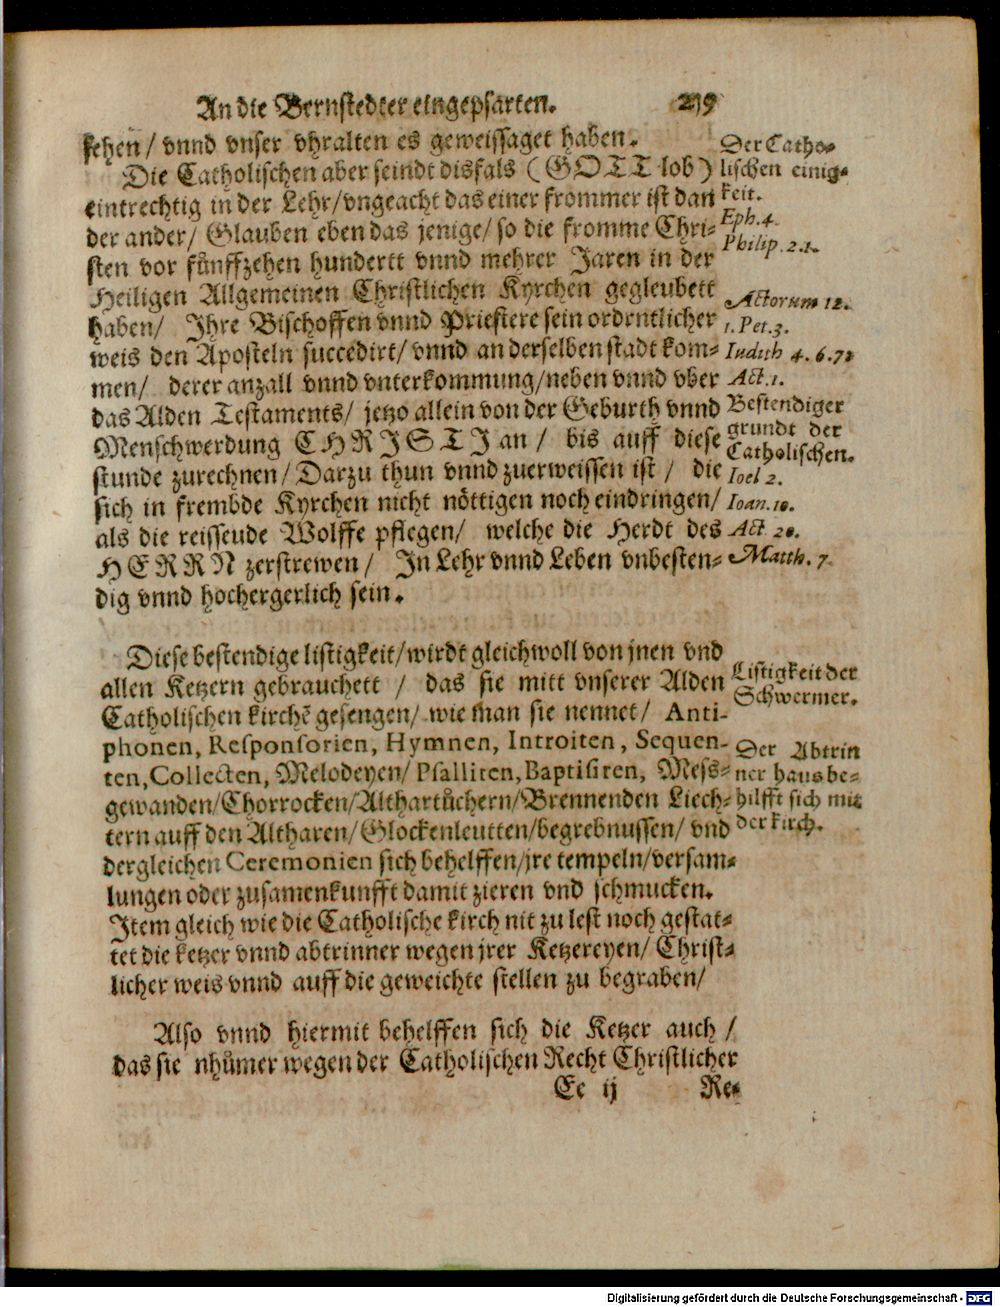 An die Bernstedter eingepfarten. 219
sehen / vnnd vnser vhralten es geweissaget haben.
Die Catholischen aber seindt disfals ( GOTT lob )
eintrechtig in der Lehr/vngeacht das einer frommer ist dan
der ander/ Glauben eben das jenige/ so die fromme Chri-
sten vor fůnffzehen hundertt vnnd mehrer Jaren in der
Heiligen Allgemeinen Christlichen Kyrchen gegleubett
haben/ Ihre Bischoffen vnnd Priestere sein ordentlicher
weis den Aposteln succedirt/ vnnd an derselben stadt kom-
men/ derer anzall vnnd vnterkommung/neben vnnd vber
das Alden Testaments/ jetzo allein von der Geburth vnnd
Menschwerdung CHRISTI an / bis auff diese
stunde zurechnen/ Darzu thun vnnd zuerweissen ist / die
sich in frembde Kyrchen nicht nôttigen noch eindringen/
als die reissende Wolffe pflegen/ welche die Herdt des
HERRN zerstrewen / In Lehr vnnd Leben vnbesten-
dig vnnd hochergerlich sein.
Der Catho-
lischen einig-
keit.
Eph. 4.
Philip. 2.1.
Actorum 12.
1. Pet. 3.
Iudith 4. 6. 7.
Act. 1.
Bestendiger
grundt der
Catholischen.
Ioel 2.
Ioan. 10.
Act 20.
Matth. 7
Diese bestendige listigkeit/wirdt gleichwoll von jnen vnd
allen Ketzern gebrauchett / das sie mitt vnserer Alden
Catholischen kirchē gesengen/ wie man sie nennet/ Anti-
phonen, Responsorien, Hymnen, Introiten, Sequen-
ten, Collecten, Melodeyen/ Psalliren, Baptisiren, Mess-
gewanden/Chorrocken/Althartůchern/Brennenden Liech-
tern auff den Altharen/Glockenleutten/begrebnussen/ vnd
dergleichen Ceremonien sich behelffen/jre tempeln/versam-
lungen oder zusamenkunfft damit zieren vnd schmucken.
Item gleich wie die Catholische kirch nit zu lest noch gestat-
tet die ketzer vnnd abtrinner wegen jrer Ketzereyen/ Christ-
licher weis vnnd auff die geweichte stellen zu begraben/
Listigkeit der
Schwermer.
Der Abtrin
ner haus be-
hilfft sich mit
der kirch.
Also vnnd hiermit behelffen sich die Ketzer auch /
das sie nhůmer wegen der Catholischen Recht Christlicher
Ee ij Re-
Digitalisierung gefördert durch die Deutsche Forschungsgemeinschaft - DFG